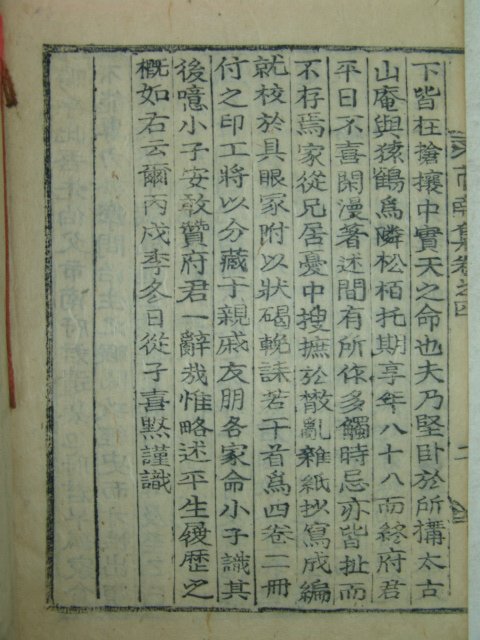 市南集卷之四
下皆在搶攘中實天之命也夫乃堅卧於所搆太古
山庵與猿鶴爲隣松栢托期享年八十八而終府君
平日不喜閑漫著述間有所作多觸時忌亦皆扯而
不存焉家從兄居憂中搜摭於散亂雜紙抄寫成編
就校於具眼家附以狀碣輓誄若干首爲四卷二冊
付之印工將以分藏于親戚友朋各家命小子識其
後噫小子安敢贊府君一辭哉惟略述平生履歷之
槪如右云爾丙戌季冬日從子喜㸃謹識